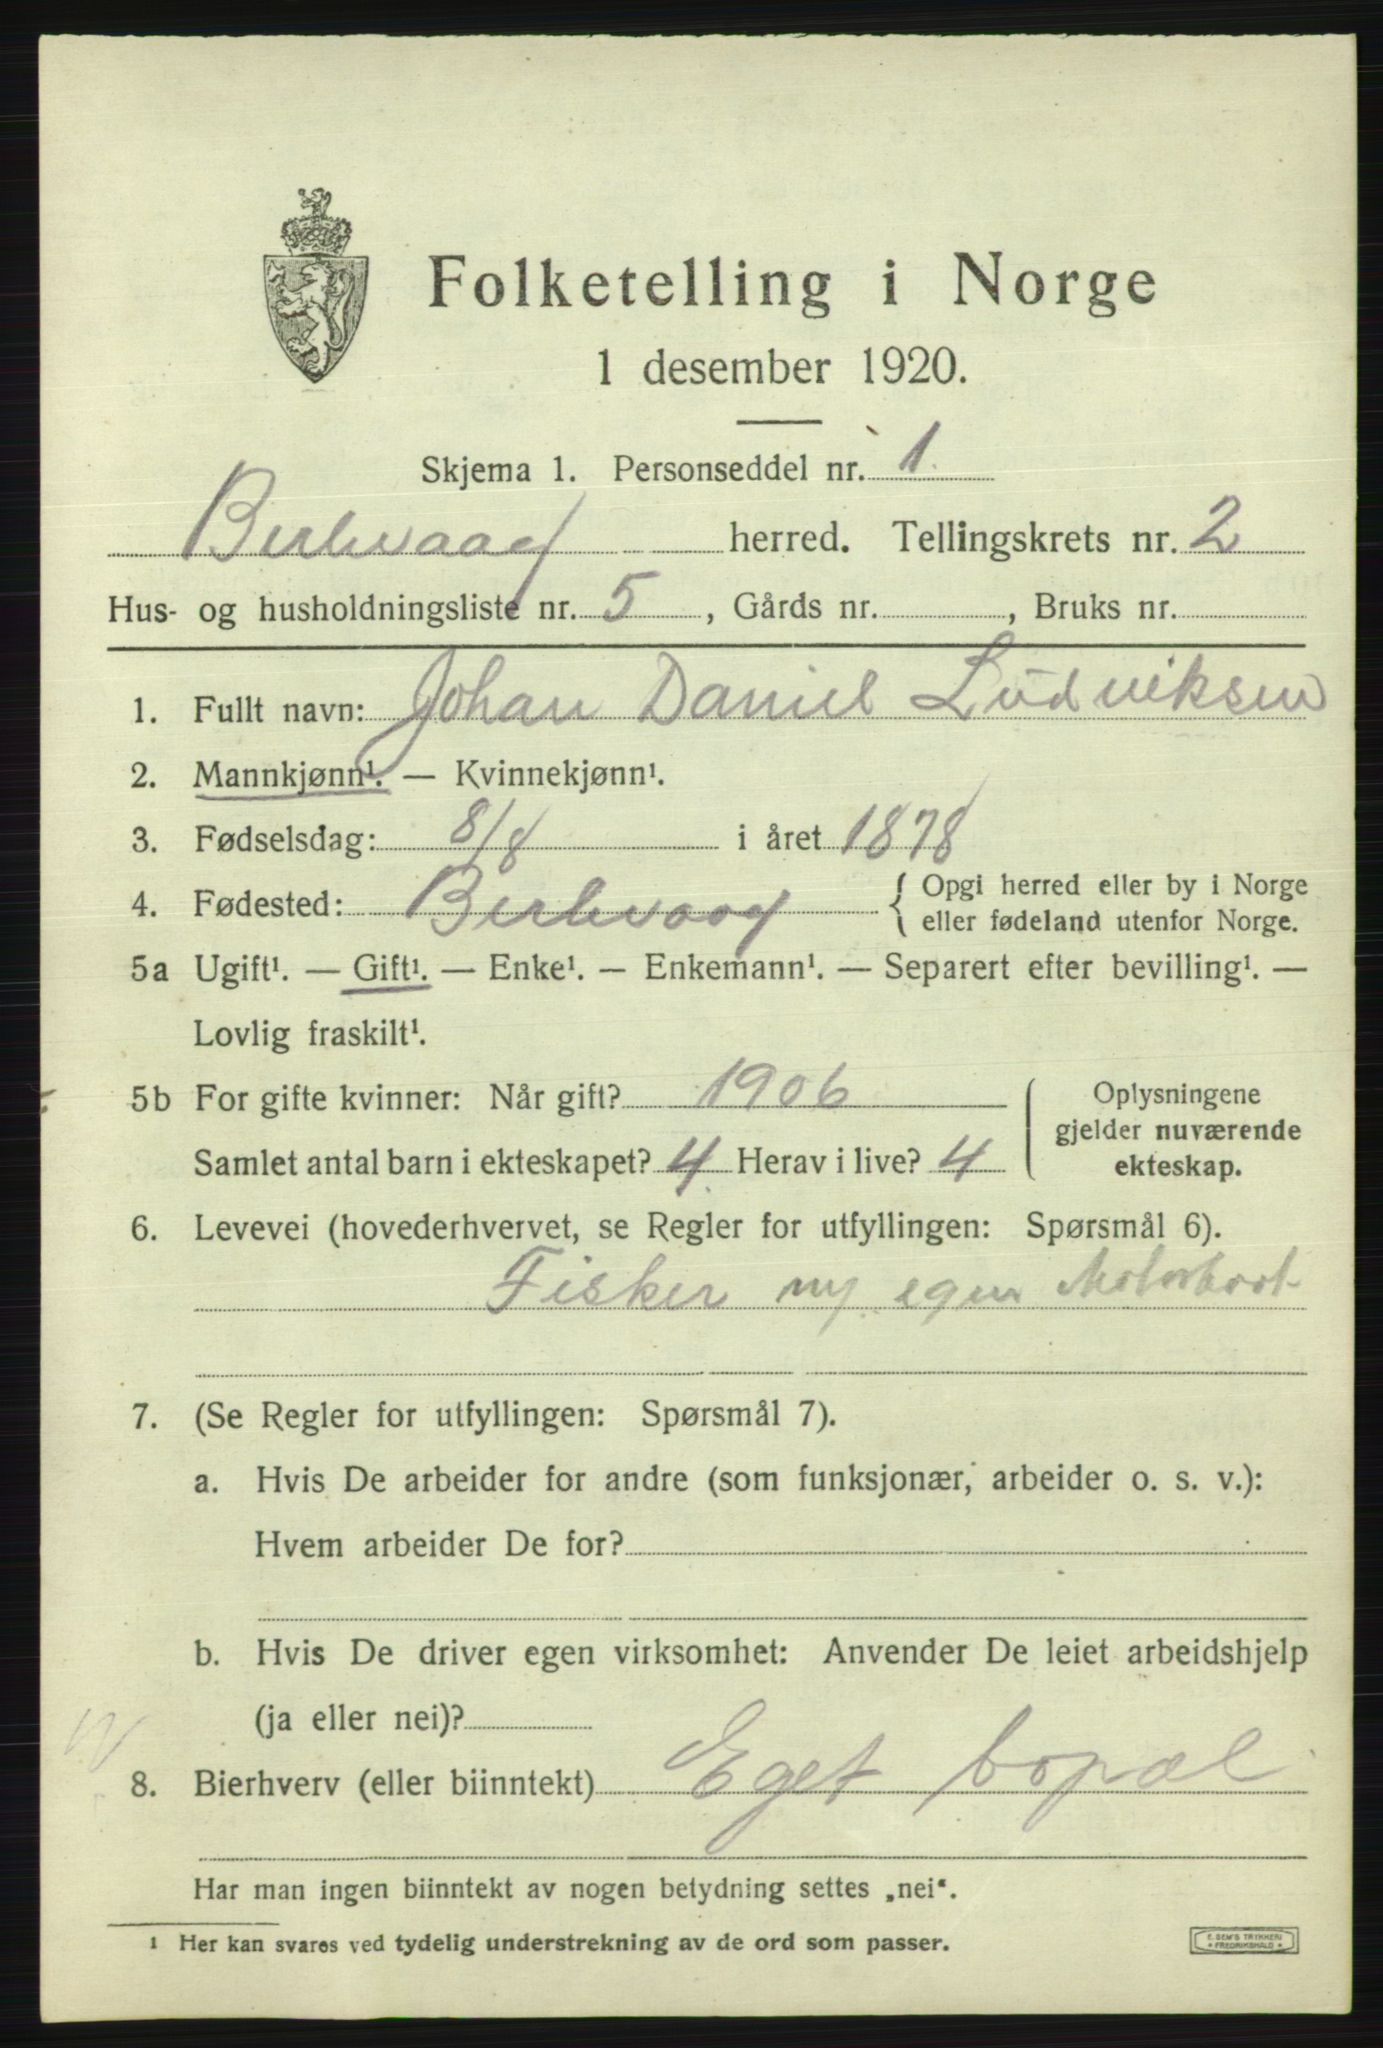 Folketelling i Norge
1 desember 1920.
Skjema 1. Personseddel nr. 1
Berlevaag herred. Tellingskrets nr. 2
Hus- og husholdningsliste nr. 5, Gårds nr. , Bruks nr.
1. Fullt navn: Johan Daniel Ludviksen
2. Mannkjønn¹. — Kvinnekjønn¹.
3. Fødselsdag: 8/8 i året 1878
4. Fødested: Berlevaag { Opgi herred eller by i Norge
eller fødeland utenfor Norge.
5a Ugift¹. — Gift¹. — Enke¹. — Enkemann¹. — Separert efter bevilling¹. —
Lovlig fraskilt¹.
5b For gifte kvinner: Når gift? 1906
Samlet antal barn i ekteskapet? 4 Herav i live? 4
Oplysningene
gjelder nuværende
ekteskap.
6. Levevei (hovederhvervet, se Regler for utfyllingen: Spørsmål 6).
Fisker egen Motorboot
7. (Se Regler for utfyllingen: Spørsmål 7).
a. Hvis De arbeider for andre (som funksjonær, arbeider o. s. v.):
Hvem arbeider De for?
b. Hvis De driver egen virksomhet: Anvender De leiet arbeidshjelp
(ja eller nei)?
8. Bierhverv (eller biinntekt) Eget bopæl
Har man ingen biinntekt av nogen betydning settes „nei“.
¹ Her kan svares ved tydelig understrekning av de ord som passer.
E. SEM'S TRYKKERI
FREDRIKSHALD